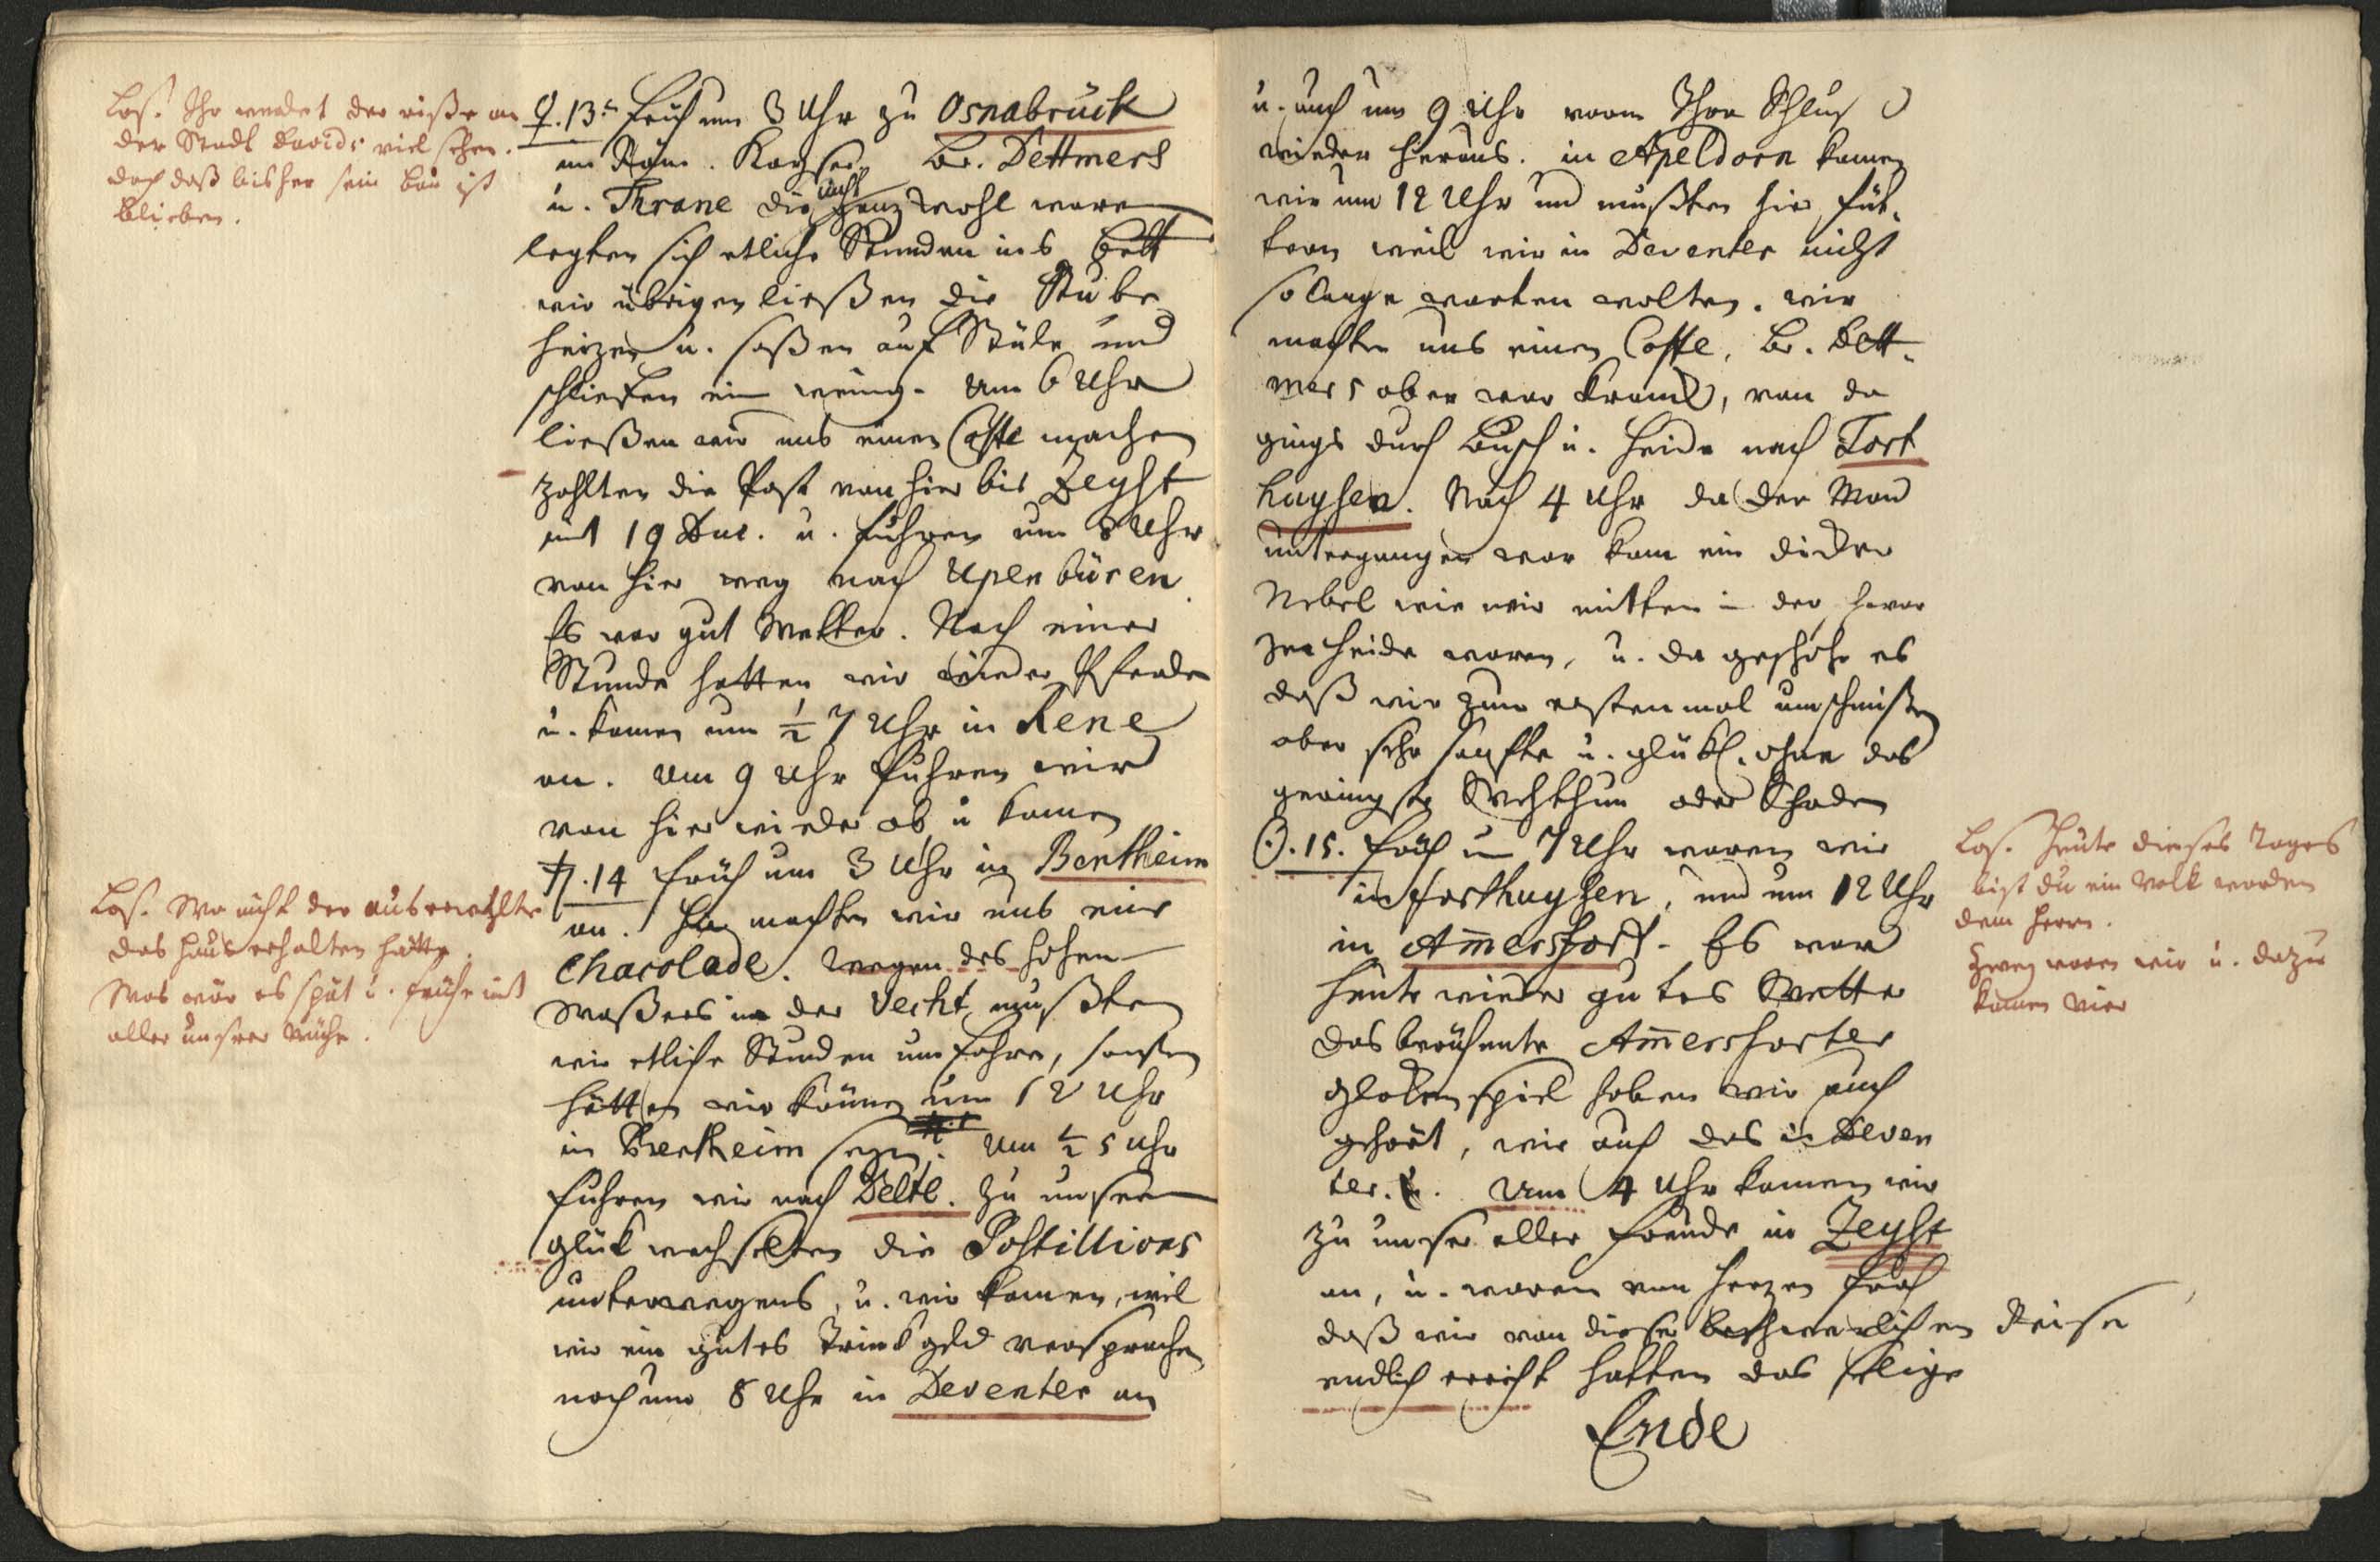 Loß. Ihr werdet der riße an
der Stadt Davids viel sehen.
doch daß bisher sein bau ist
blieben.
♀.13ᵗ früh um 3 Uhr zu Osnabrück
im Röm. Kayser. Br. Dettmers
u. Thrane die nicht ganz wohl waren
legten sich etliche Stunden ins bett
wir übrigen ließen die Stube
heizen u. saßen auf Stüle und
schliefen ein wenig. Um 6 Uhr
ließen wir uns einen Coffe machen
zahlten die Post von hier bis Zeyst
mit 19 Duc. u. fuhren um 8 Uhr
von hier weg nach Upenbüren.
Es war gut Wetter. Nach einer
Stunde hatten wir wieder Pferde
u. kamen um ½ 7 Uhr in Rene
an. Um 9 Uhr fuhren wir
von hier wieder ab u kamen
♄.14 früh um 3 Uhr in Bentheim
an. Hier machten wir uns eine
Chacolade. Wegen des hohen
Waßers in der Vecht mußten
wir etliche Stunden umfahren, sonsten
hätten wir können um 12 Uhr
in Bentheim seyn. Um ½ 5 Uhr
fuhren wir nach Delte. Zu unserm
glük wechselten die Postillions
unterwegens, u. wir kamen, weil
wir ein gutes Trinkgeld versprachen
noch um 8 Uhr in Deventer an
Loß. Wo nicht der auserwehlte
das Haus erhalten hätte.
Was wär es spät u. frühe mit
aller unsrer mühe.
u. auch um 9 Uhr vorm Thor Schluß
wieder heraus. in Apeldorn kamen
wir um 12 Uhr und mußten hier füt-
tern weil wir in Deventer nicht
so lange warten wolten. wir
machten uns einen Coffe, Br. Dett-
mers aber war krank, von da
gings durch busch u. Heide nach Fort
huysen. Nach 4 Uhr da der Mond
untergangen war kam ein dicker
Nebel wie wir mitten in der
Heide waren, u. da geschahe es
daß wir zum erstenmal umschmißen
aber sehr sanfte u. glükl. ohne das
geringste Wehthun oder Schaden
☉.15. früh um 7 Uhr waren wir
in Forthuysen, und um 12 Uhr
in Am̅ersfort. Es war
heute wieder gutes Wetter
das berühmte Am̅ersforter
gloken spiel haben wir auch
gehört, wie auch das in Deven
ter. Um 4 Uhr kamen wir
zu unser aller freude in Zeyst
an, u. waren von Herzen froh
daß wir von dieser beschwerlichen Reise
endlich erreicht hatten das selige
Ende
Loß. Heute dieses Tages
bist du ein Volk worden
dem Herrn.
Zwey waren wir u. dazu
kamen vier